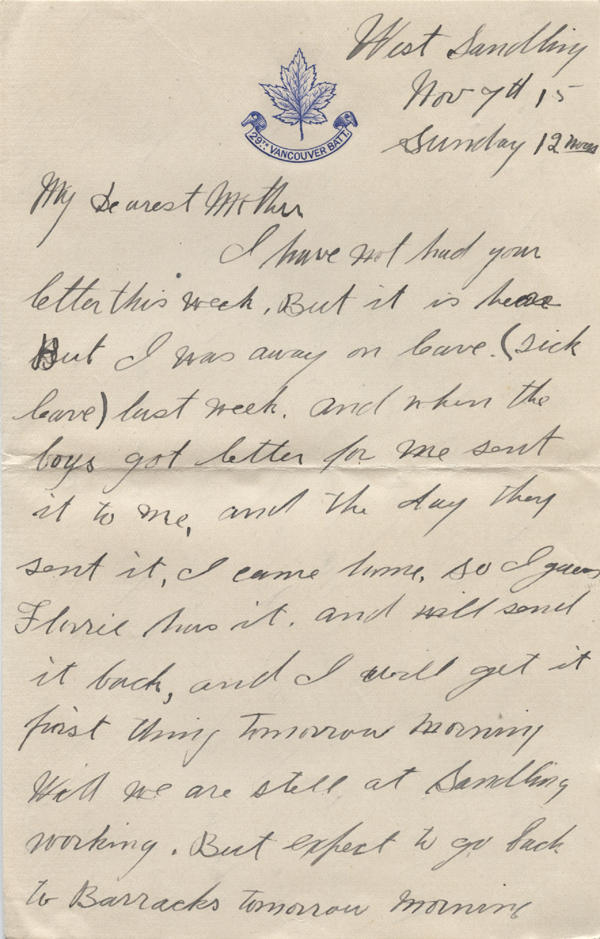 West Sandling
Nov 7th 15
Sunday 12 noon
29TH VANCOUVER BATT.
My Dearest Mother
I have not had your
letter this week. But it is here
But I was away on leave. (sick
leave) last week. and when the
boys got letter for me sent
it to me, and the day they
sent it, I came home. so I guess
Florrie has it. and will send
it back, and I will get it
first thing tomorrow morning
Well we are still at Sandling
working. But expect to go back
to Barracks tomorrow morning